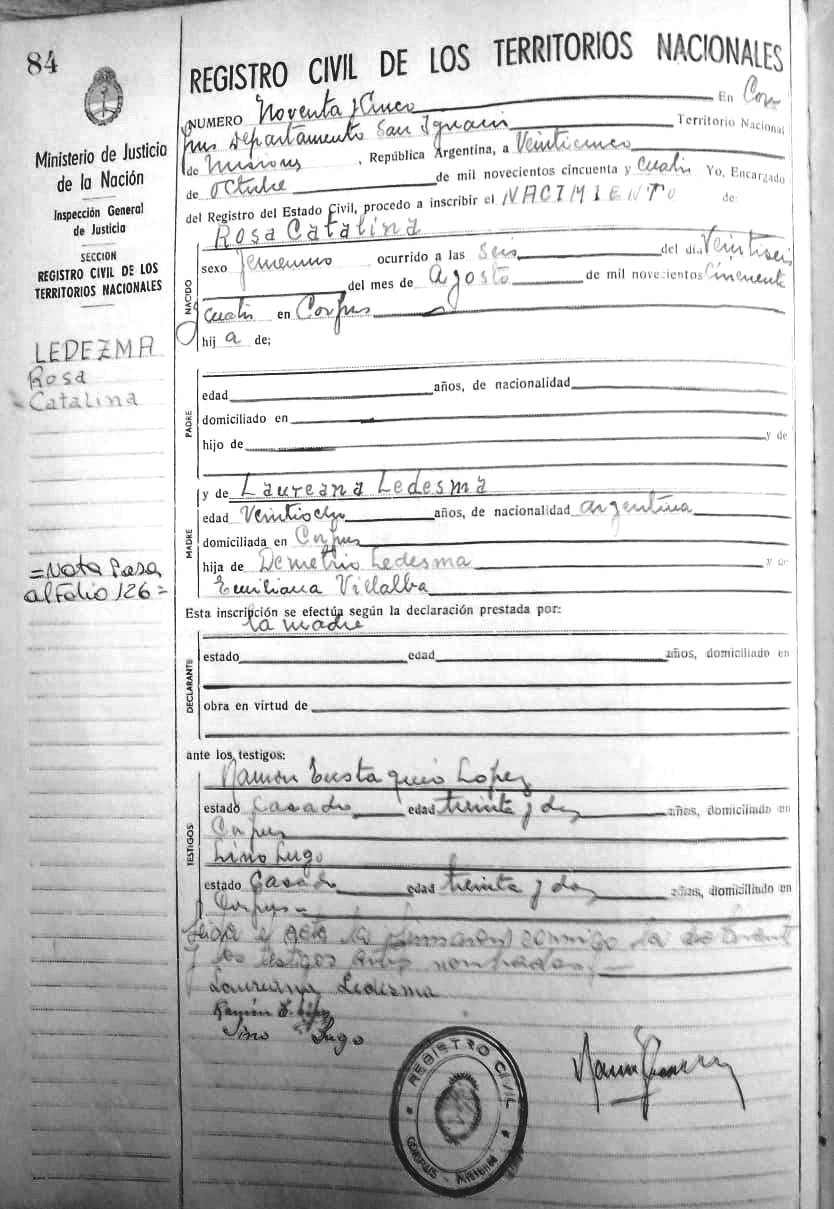 84
REGISTRO CIVIL DE LOS TERRITORIOS NACIONALES
Ministerio de Justicia
de la Nación
Inspección General
de Justicia
SECCION
REGISTRO CIVIL DE LOS
TERRITORIOS NACIONALES
LEDEZMA
Rosa
Catalina
=Nota Pasa
al Folio 126=
NUMERO Noventa y Cinco En Cor-
pus Departamento San Ignacio Territorio Nacional
de Misiones, República Argentina, a Veinticinco
de Octubre de mil novecientos cincuenta y Cuatro Yo, Encargado
del Registro del Estado Civil, procedo a inscribir el NACIMIENTO de:
NACIDO
Rosa Catalina
sexo femenino ocurrido a las Seis del día Veintiseis
del mes de Agosto de mil novecientos Cincuenta
y Cuatro en Corpus
hija de;
PADRE
edad años, de nacionalidad
domiciliado en
hijo de y de
MADRE
y de Laureana Ledesma
edad años, de nacionalidad argentina
domiciliada en Corpus
hija de Demetrio Ledesma y de
Emiliana Villalba
Esta inscripción se efectúa según la declaración prestada por:
la madre
DECLARANTE
estado edad años, domiciliado en
obra en virtud de
ante los testigos:
TESTIGOS
Ramón Eustaquio Lopez
estado Casado edad treinta y dos años, domiciliado en
Corpus
Lino Lugo
estado Casado edad treinta y dos años, domiciliado en
Corpus=
acta la firmaron conmigo la
y los testigos nombrados
Laureana Ledesma
Ramón E. López
Lino Lugo
REGISTRO CIVIL
CORPUS - MISIONES